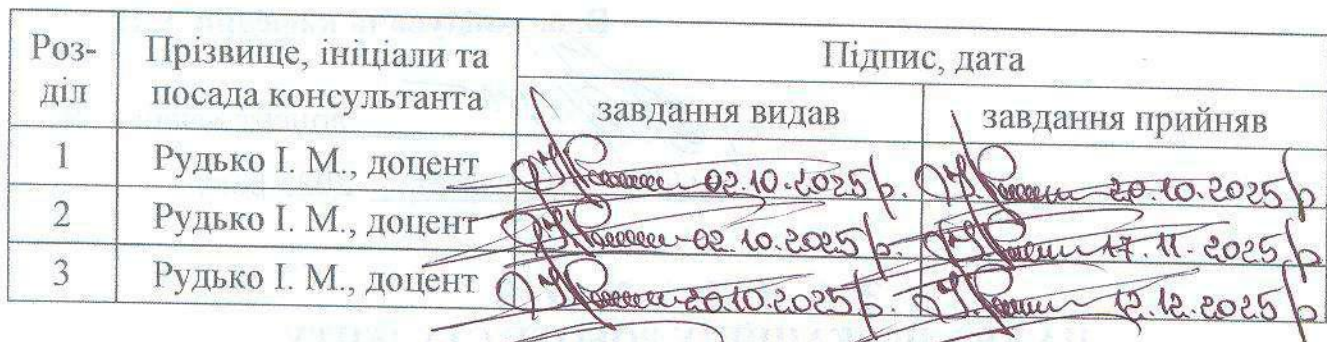 Роз-
діл
Прізвище, ініціали та
посада консультанта
Підпис, дата
завдання видав
завдання прийняв
1 Рудько І. М., доцент 02.10.2025 р. 20.10.2025 р
2 Рудько І. М., доцент 02.10.2025 р. 17.11.2025 р
3 Рудько І. М., доцент 20.10.2025 р. 12.12.2025 р